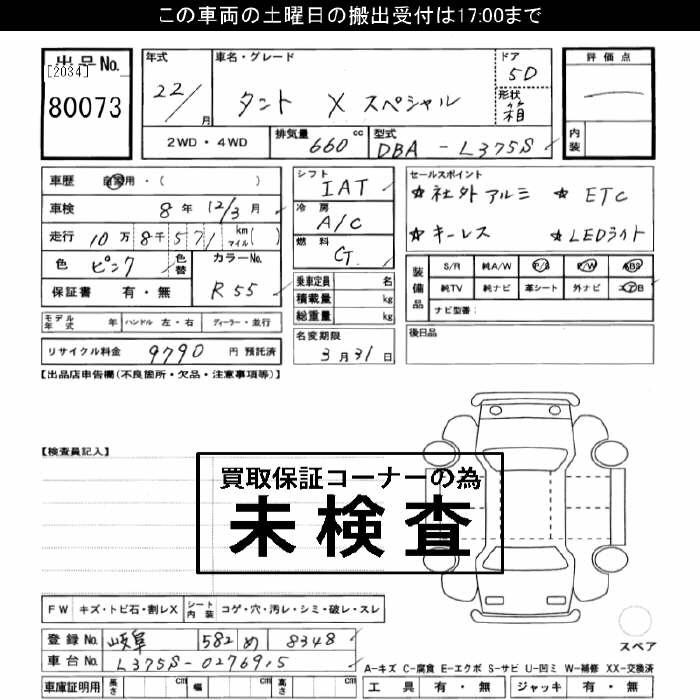 この車両の土曜日の搬出受付は17:00まで
出品No.
[2034]
80073
年式
22/
月
車名・グレード
タント X スペシャル
ドア
5D
形状
箱
評価点
内装
2WD・4WD
排気量
660
cc
型式
DBA - L375S
車歴 自家用・( )
車検 8年 12/3月
走行 10万 8千 571 km マイル( )
色 ピンク
色替
カラーNo.
R55
保証書 有・無
シフト
IAT
冷房
A/C
燃料
G
乗車定員 名
積載量 kg
総重量 kg
セールスポイント
☆社外アルミ ☆ ETC
☆キーレス ☆LEDライト
装備品
S/R 純A/W P/S P/W ABS
純TV 純ナビ 革シート 外ナビ エアB
ナビ型番:
モデル年式 年 ハンドル 左・右 ディーラー・並行
リサイクル料金 9790 円 預託済
名変期限
3月31日
後日品
【出品店申告欄(不良箇所・欠品・注意事項等)】
【検査員記入】
買取保証コーナーの為
未検査
FW キズ・トビ石・割レX
シート内装 コゲ・穴・汚レ・シミ・破レ・スレ
登録No. 岐阜 582 め 8348
車台No. L375S-0276915
スペア
A-キズ C-腐食 E-エクボ S-サビ U-凹ミ W-補修 XX-交換済
車庫証明用 長さ cm 幅 cm 高さ cm
工具 有・無 ジャッキ 有・無